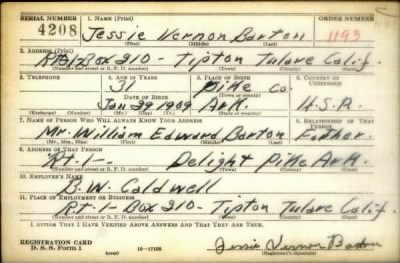 SERIAL NUMBER 1. NAME (Print) ORDER NUMBER
4208 Jessie Vernon Barton 1193
(First) (Middle) (Last)
2. ADDRESS (Print)
Rt 1 Box 210 - Tipton Tulare Calif.
(Number and street or R. F. D. number) (Town) (County) (State)
3. TELEPHONE 4. AGE IN YEARS 5. PLACE OF BIRTH 6. COUNTRY OF CITIZENSHIP
31 Pike Co.
DATE OF BIRTH (Town or county)
Jan 29 1909 Ark. U.S.A.
(Exchange) (Number) (Mo.) (Day) (Yr.) (State or country)
7. NAME OF PERSON WHO WILL ALWAYS KNOW YOUR ADDRESS 8. RELATIONSHIP OF THAT PERSON
Mr. William Edward Barton Father.
(Mr., Mrs., Miss) (First) (Middle) (Last)
9. ADDRESS OF THAT PERSON
Rt-1- Delight Pike Ark.
(Number and street or R. F. D. number) (Town) (County) (State)
10. EMPLOYER'S NAME
B. W. Caldwell
11. PLACE OF EMPLOYMENT OR BUSINESS
Rt-1-Box 210- Tipton Tulare Calif
(Number and street or R. F. D. number) (Town) (County) (State)
I AFFIRM THAT I HAVE VERIFIED ABOVE ANSWERS AND THAT THEY ARE TRUE.
REGISTRATION CARD
D. S. S. Form 1 (over) Jessie Vernon Barton
(Registrant's signature)